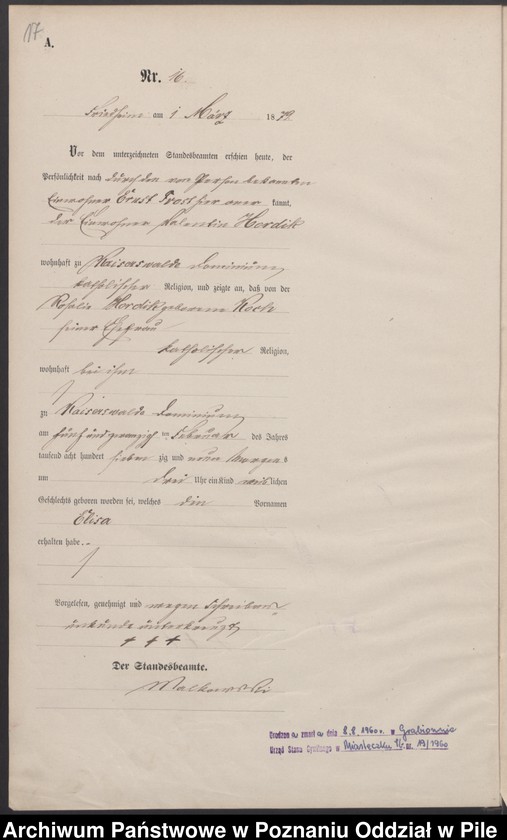 17
A.
Nr. 16
Friedheim am 1 März 1879.
Vor dem unterzeichneten Standesbeamten erschien heute, der
Persönlichkeit nach durch den von Person bekannten
Einwohner Ernst Frost hier aner kannt,
der Einwohner Valentin Hordik
wohnhaft zu Kaiserswalde Dominium
katholischer Religion, und zeigte an, daß von der
Rosalie Hordik geborene Koch
seiner Ehefrau
katholischer Religion,
wohnhaft bei ihm
zu Kaiserswalde Dominium
am fünf und zwanzigsten Februar des Jahres
tausend acht hundert sieben zig und neun Morgens
um drei Uhr ein Kind weiblichen
Geschlechts geboren worden sei, welches den Vornamen
Elisa
erhalten habe.
Vorgelesen, genehmigt und wegen Schreibens
unkunde unterkreuzt
+ + +
Der Standesbeamte.
Malkowski
Urodzon a zmarł a dnia 8.8.1960 r. w Grabionnie
Urząd Stanu Cywilnego w Miasteczku 19/1960
Archiwum Państwowe w Poznaniu Oddział w Pile